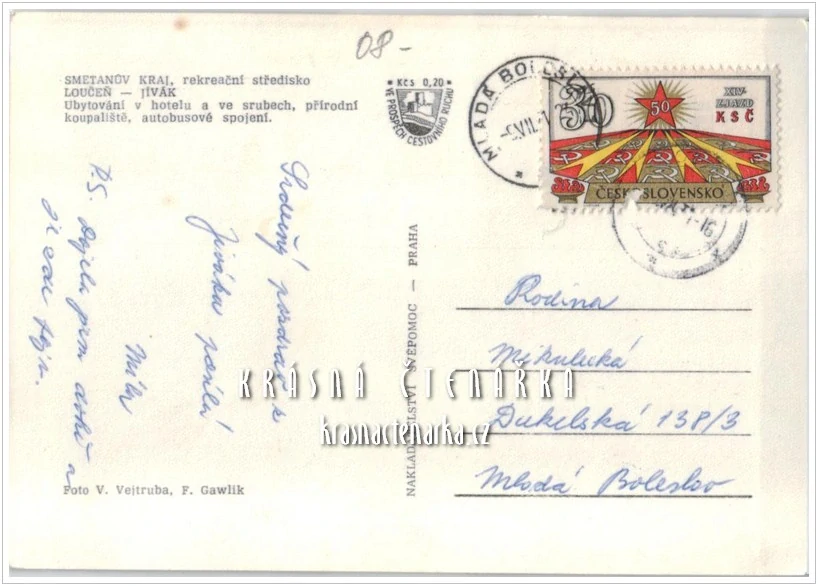 08-
SMETANŮV KRAJ, rekreační středisko
LOUČEŇ — JÍVÁK
Ubytování v hotelu a ve srubech, přírodní
koupaliště, autobusové spojení.
Kčs 0,20
VE PROSPĚCH CESTOVNÍHO RUCHU
MLADÁ BOLESLAV
30
50
XIV.
ZJAZD
KSČ
ČESKOSLOVENSKO
Srdečný pozdrav z
Jiváku posílá
Míla
P.S. Dojela jsem dobře a
je zde
NAKLADATELSTVÍ SVÉPOMOC — PRAHA
Rodina
Mikulecká
Dukelská 138/3
Mladá Boleslav
KRÁSNÁ ČTENÁŘKA
krasnactenarka.cz
Foto V. Vejtruba, F. Gawlik